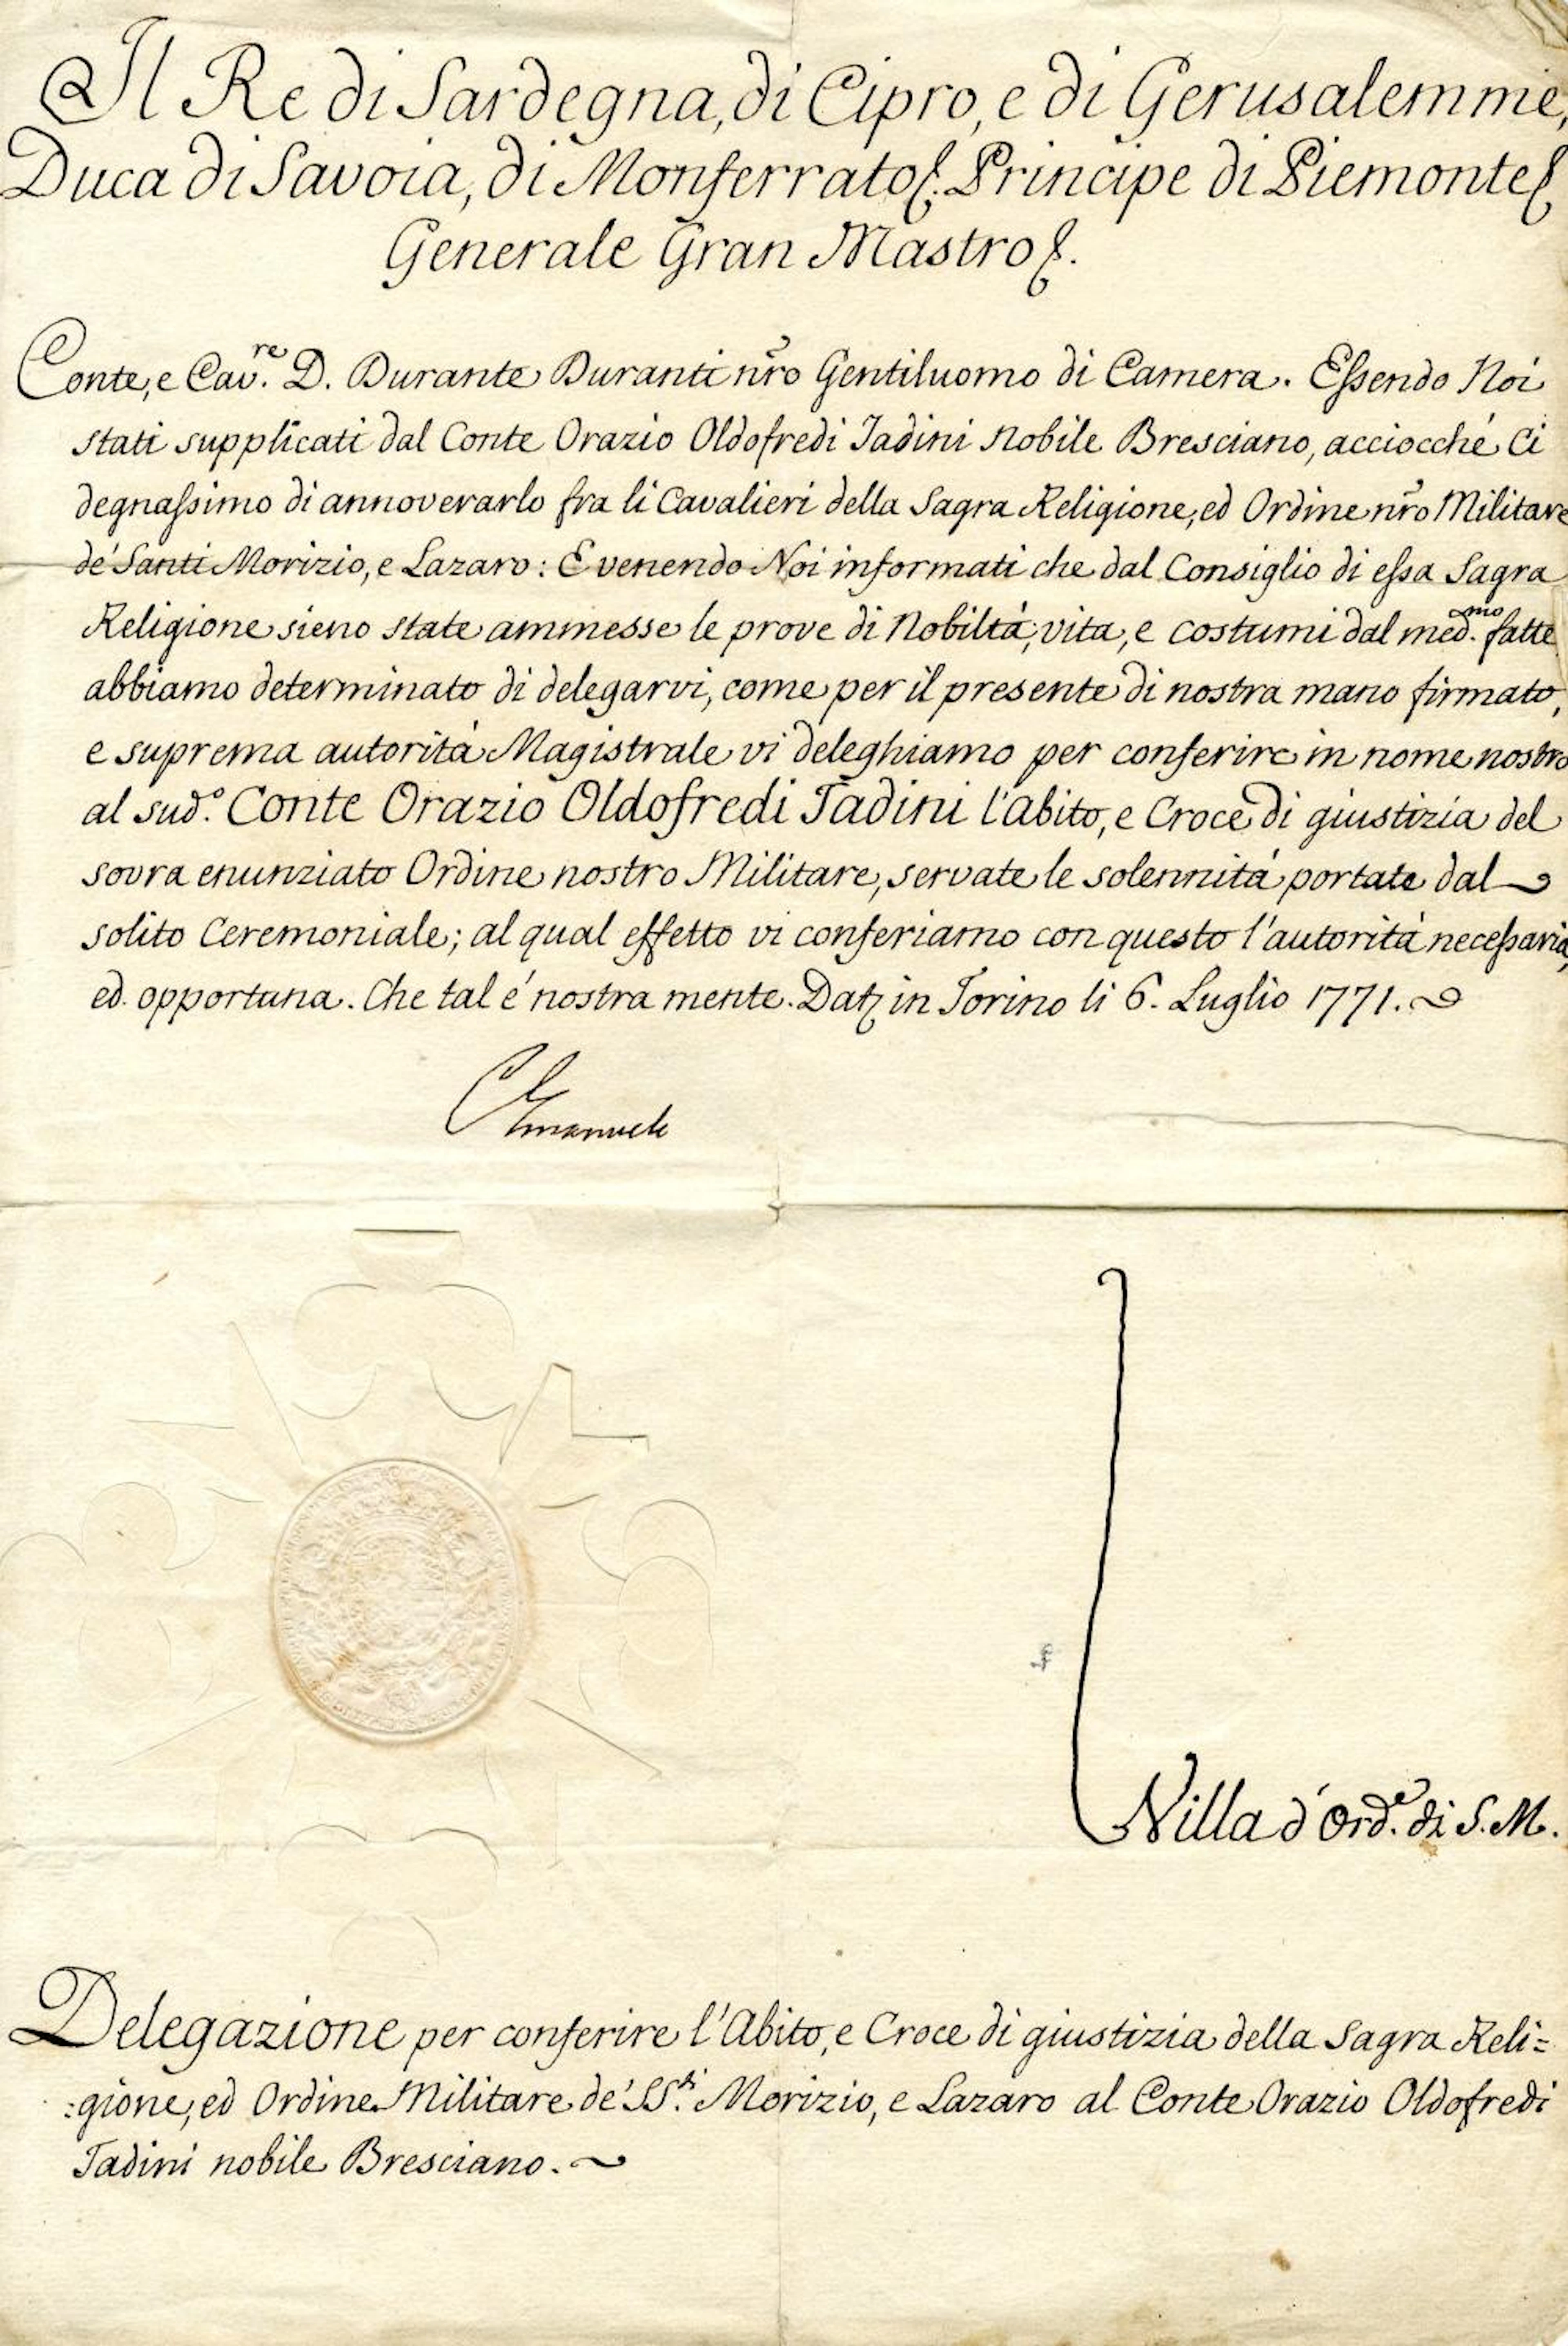 Il Re di Sardegna, di Cipro, e di Gerusalemme,
Duca di Savoia, di Monferrato &. Principe di Piemonte &
Generale Gran Mastro &.
Conte, e Cav.re D. Durante Duranti nro Gentiluomo di Camera. Essendo Noi
stati supplicati dal Conte Orazio Oldofredi Tadini Nobile Bresciano, acciocché Ci
degnassimo di annoverarlo fra li Cavalieri della Sagra Religione, ed Ordine nro Militare
de' Santi Morizio, e Lazaro: E venendo Noi informati che dal Consiglio di essa Sagra
Religione sieno state ammesse le prove di Nobiltà, vita, e costumi dal med.mo fatte
abbiamo determinato di delegarvi, come per il presente di nostra mano firmato,
e suprema autorità Magistrale vi deleghiamo per conferire in nome nostro
al sud.o Conte Orazio Oldofredi Tadini l'abito, e Croce di giustizia del
sovra enunziato Ordine nostro Militare, servate le solennità portate dal
solito Ceremoniale; al qual effetto vi conferiamo con questo l'autorità necessaria,
ed opportuna. Che tal é nostra mente. Dat. in Torino li 6. Luglio 1771.
C Emanuele
Nilla d'Ord.e di S. M.
Delegazione per conferire l'Abito, e Croce di giustizia della Sagra Reli=
:gione, ed Ordine Militare de' SS.ti Morizio, e Lazaro al Conte Orazio Oldofredi
Tadini nobile Bresciano.